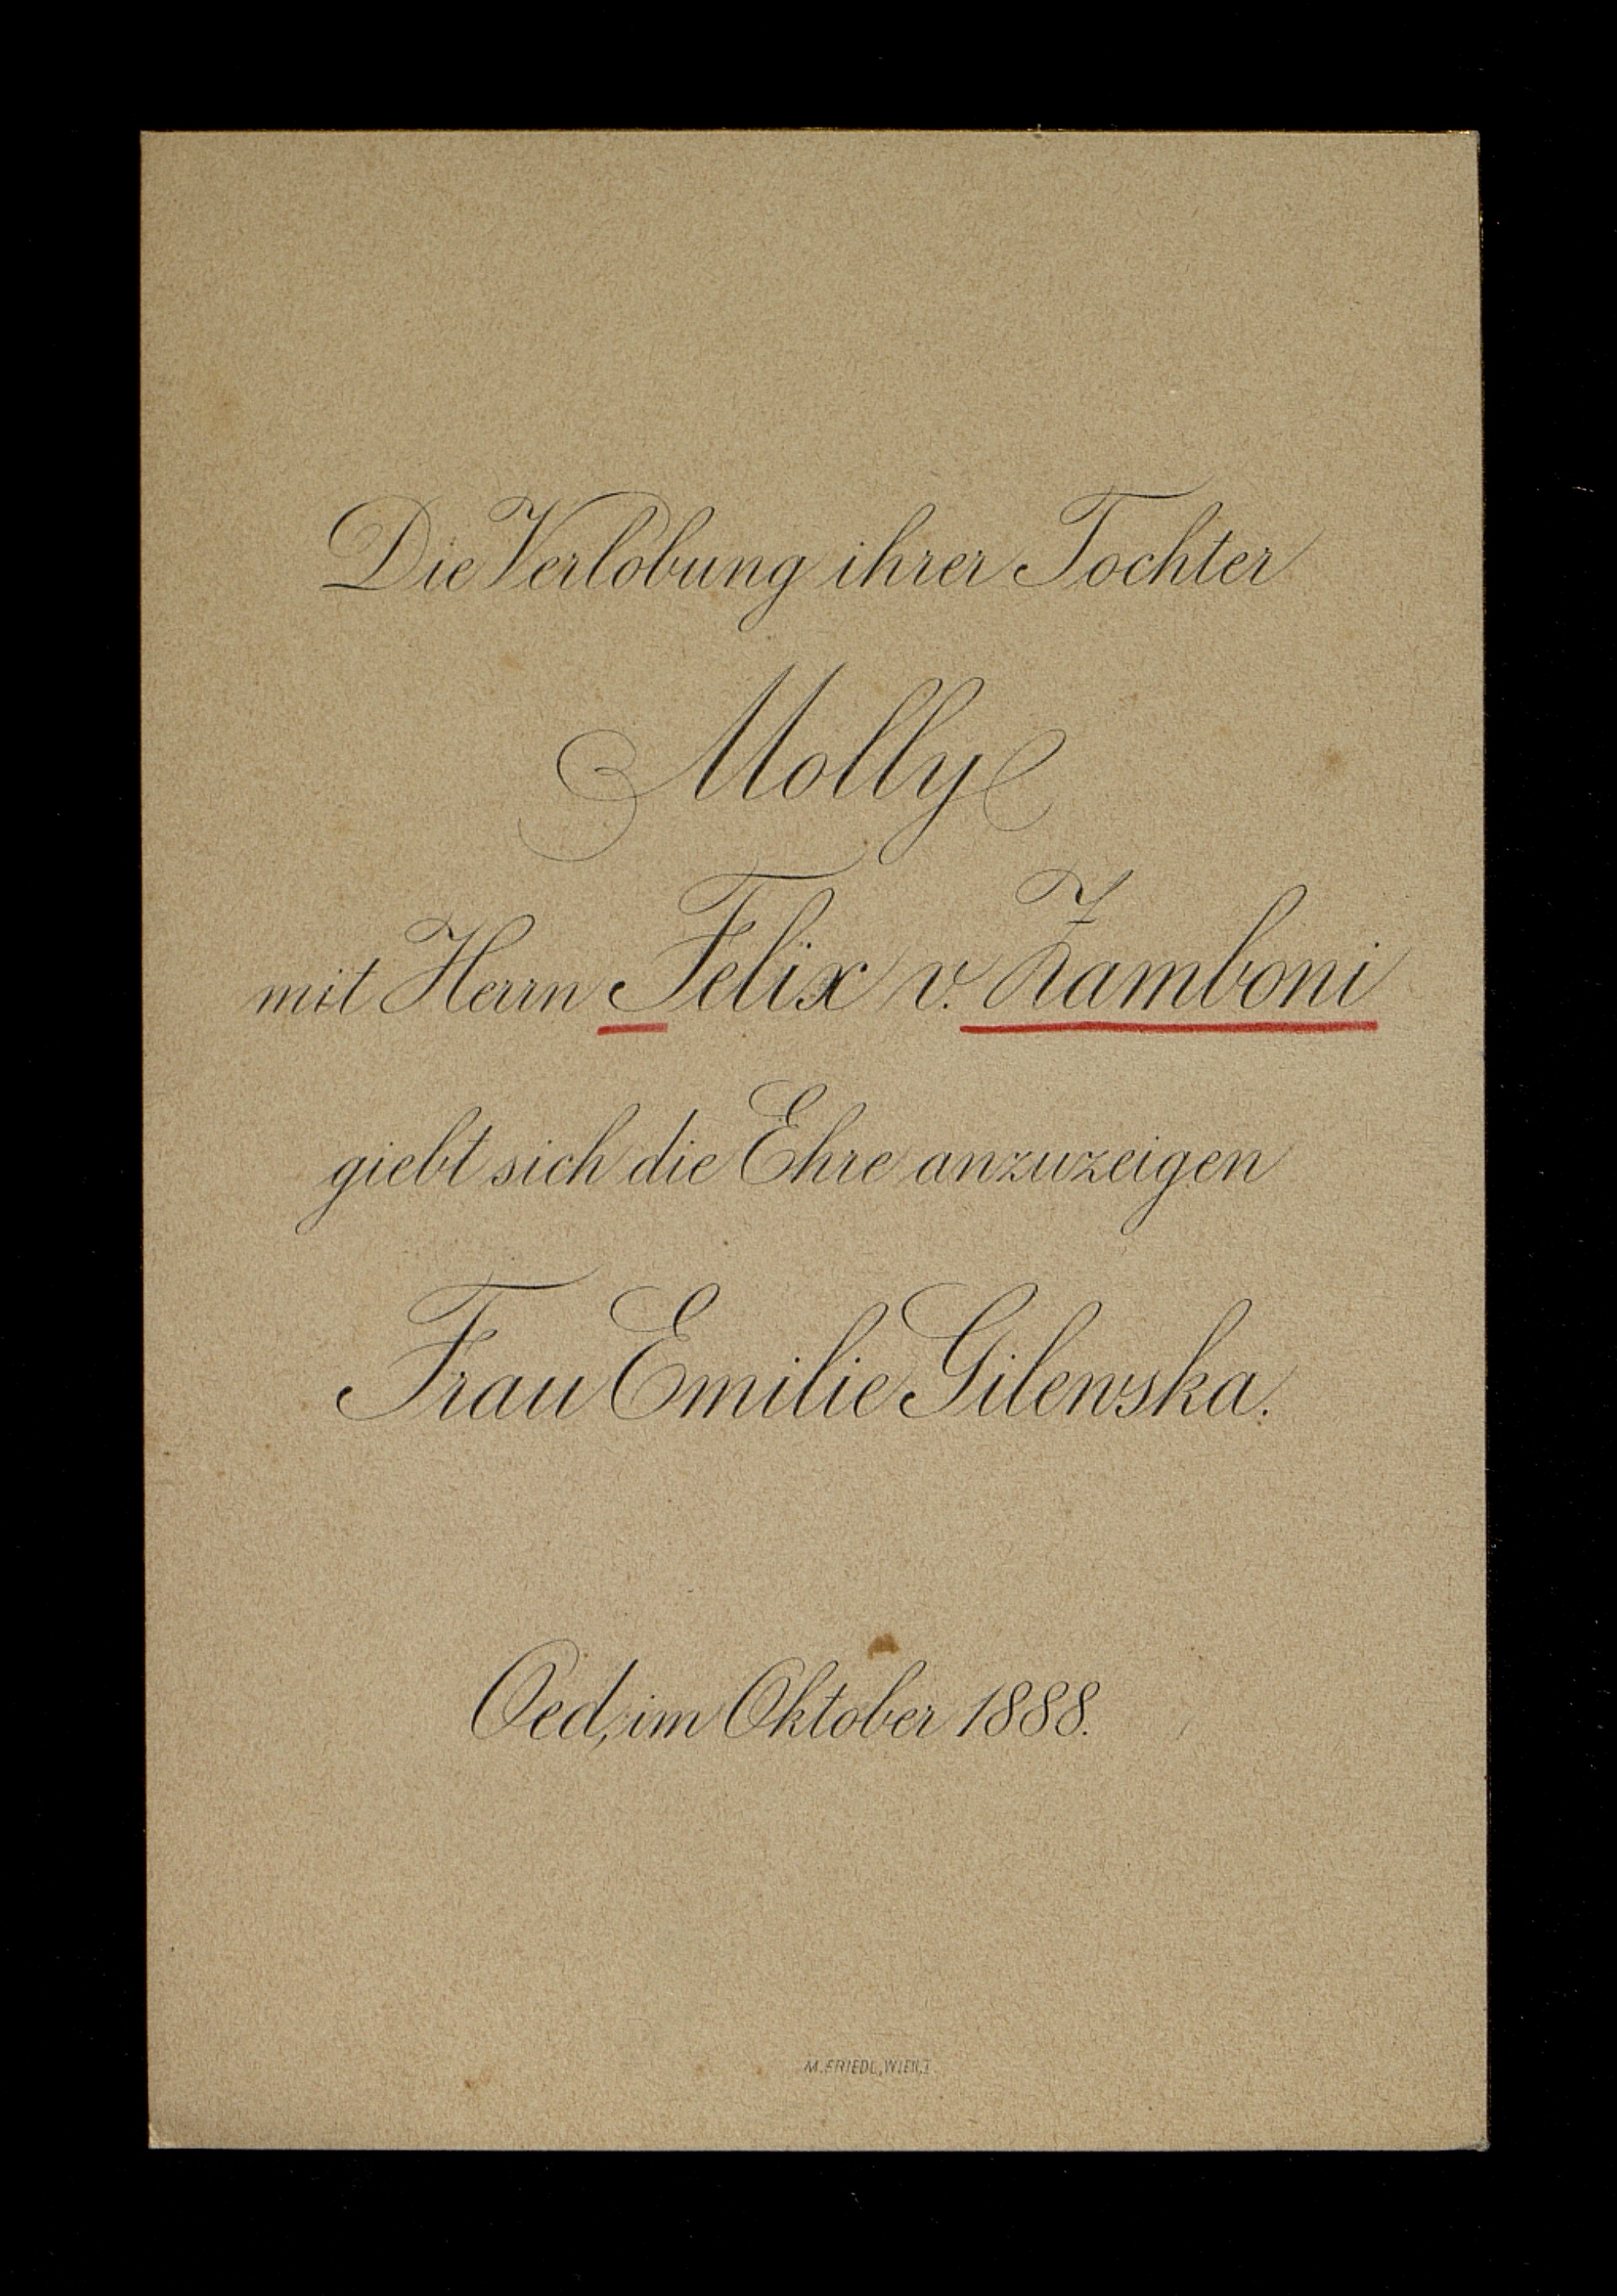 Die Verlobung ihrer Tochter
Molly
mit Herrn Felix v. Zamboni
giebt sich die Ehre anzuzeigen
Frau Emilie Gilewska.
Oed, im Oktober 1888.
M. FRIEDL, WIEN, I.